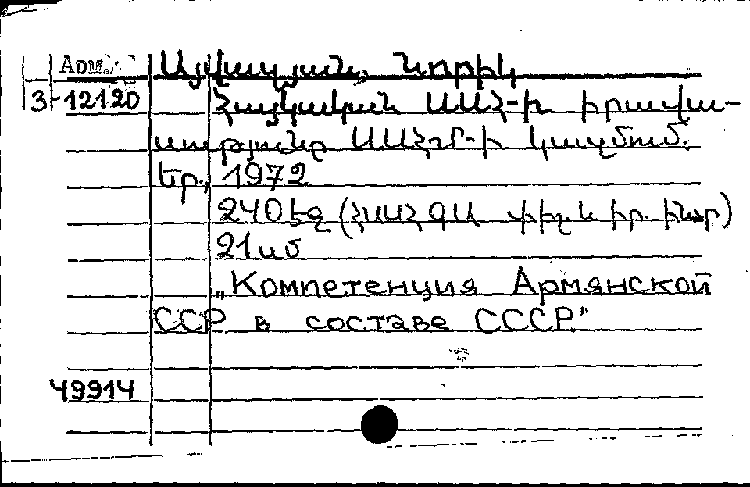 Арм.
Այվազյան, Նորիկ
3-12120
Հայկական ՍՍՀ-ի իրավա-
սությունը ՍՍՀՄ-ի կազմում.
Եր., 1972
240 էջ (ՀՍՍՀ ԳԱ փիլ. և իր. ինստ)
21 սմ
„Компетенция Армянской
ССР в составе СССР."
49914